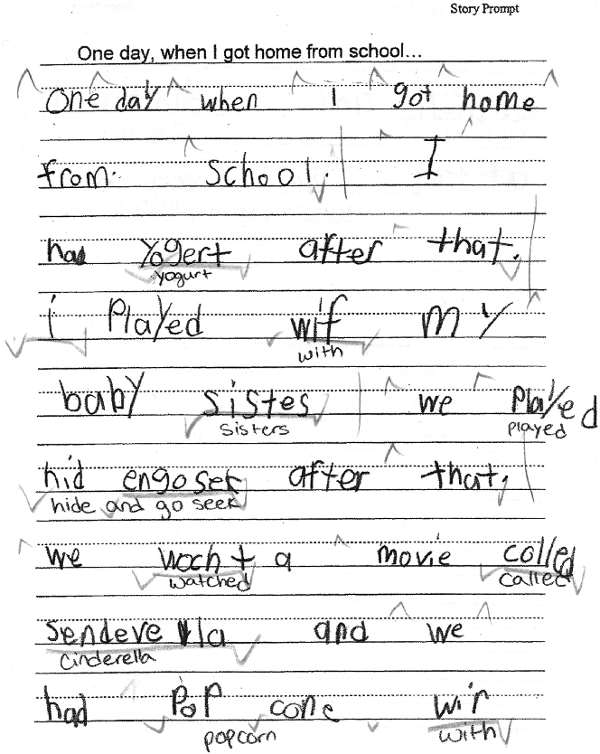 Story Prompt
One day, when I got home from school...
One day when I got home
from. school. I
had Yogert after that.
yogurt
i Played wif my
with
baby sistes we played
sisters played
hid engosek after that,
hide and go seek
we wocht a movie colled
watched called
sendevella and we
cinderella
had PoP cone wir
popcorn with